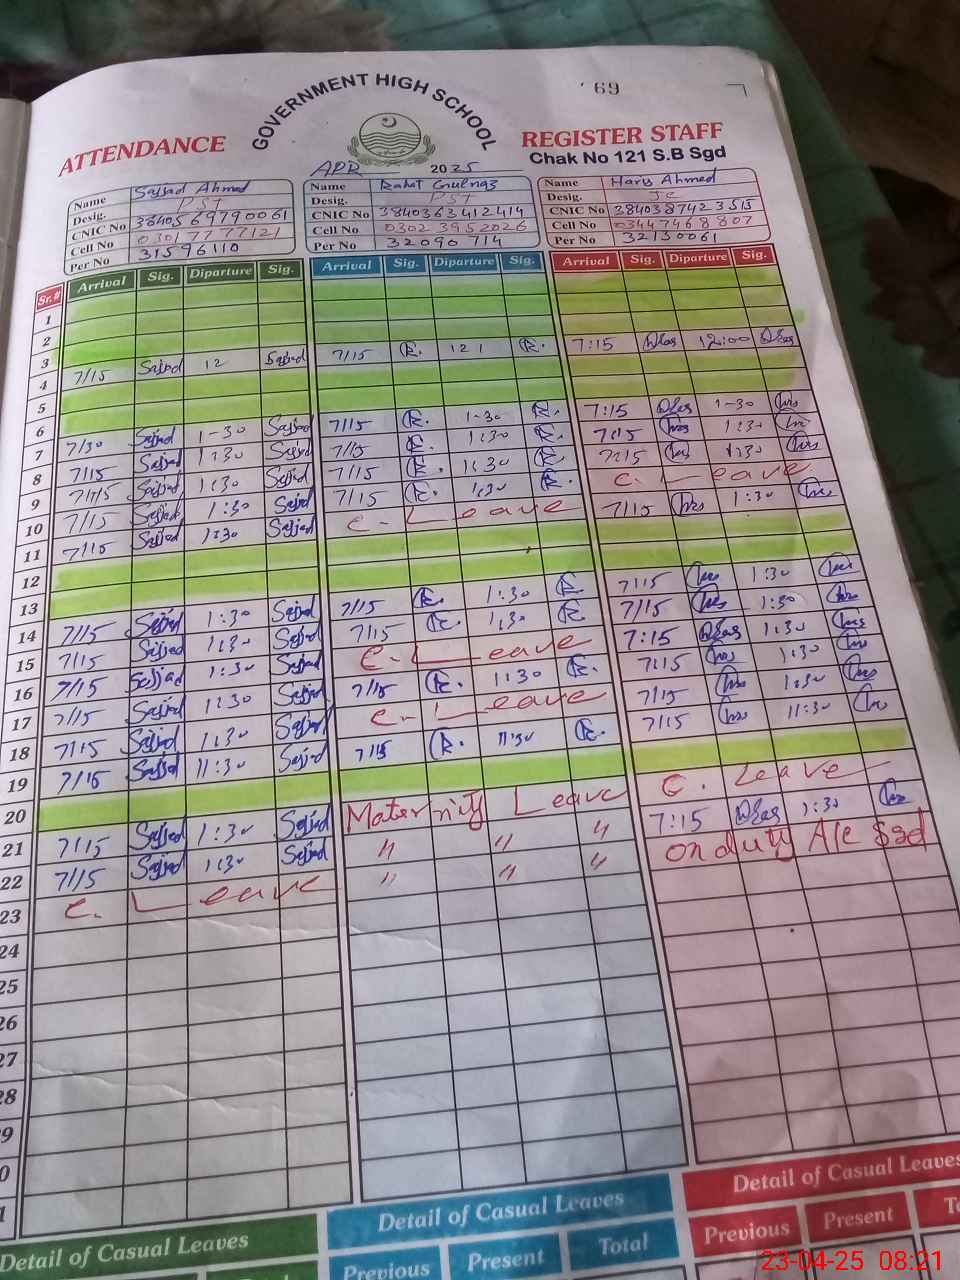 69
GOVERNMENT HIGH SCHOOL
ATTENDANCE REGISTER STAFF
Chak No 121 S.B Sgd
APR 2025
Name Sajjad Ahmed
Desig. PST
CNIC No 3840569790061
Cell No 03017777121
Per No 31596110
Name Rahat Gulnaz
Desig. PST
CNIC No 3840363412414
Cell No 03023952026
Per No 32090714
Name Harys Ahmed
Desig.
CNIC No 3840387423513
Cell No 03447468807
Per No 32130061
Sr.# Arrival Sig. Diparture Sig. Arrival Sig. Diparture Sig. Arrival Sig. Diparture Sig.
1
2
3 7/15 Sajjad 12 Sajjad 7/15 R. 12 1 R. 7:15 12:00
4
5
6 7/30 Sajjad 1-30 Sajjad 7/15 R. 1-30 R. 7:15 1-30
7 7/15 Sajjad 1:30 Sajjad 7/15 R. 1:30 R. 7:15 1:30
8 7/15 Sajjad 1:30 Sajjad 7/15 R. 1:30 R. 7:15 1:30
9 7/15 Sajjad 1:30 Sajjad 7/15 R. 1:30 R. C. Leave
10 7/15 Sajjad 1:30 Sajjad C. Leave 7/15 1:30
11
12
13 7/15 Sajjad 1:30 Sajjad 7/15 R. 1:30 R. 7/15 1:30
14 7/15 Sajjad 1:30 Sajjad 7/15 R. 1:30 R. 7/15 1:30
15 7/15 Sajjad 1:30 Sajjad C. Leave 7:15 1:30
16 7/15 Sajjad 1:30 Sajjad 7/15 R. 1:30 R. 7:15 1:30
17 7/15 Sajjad 1:30 Sajjad C. Leave 7/15 1:30
18 7/15 Sajjad 11:30 Sajjad 7/15 R. 11:30 R. 7/15 11:30
19
20 7/15 Sajjad 1:30 Sajjad Maternity Leave C. Leave
21 7/15 Sajjad 1:30 Sajjad " " " 7:15 1:30
22 C. Leave " " " on duty A/c Sgd
23
24
25
26
27
28
29
30
31
Detail of Casual Leaves Detail of Casual Leaves Detail of Casual Leaves
Previous Present Total Previous Present
23-04-25 08:21